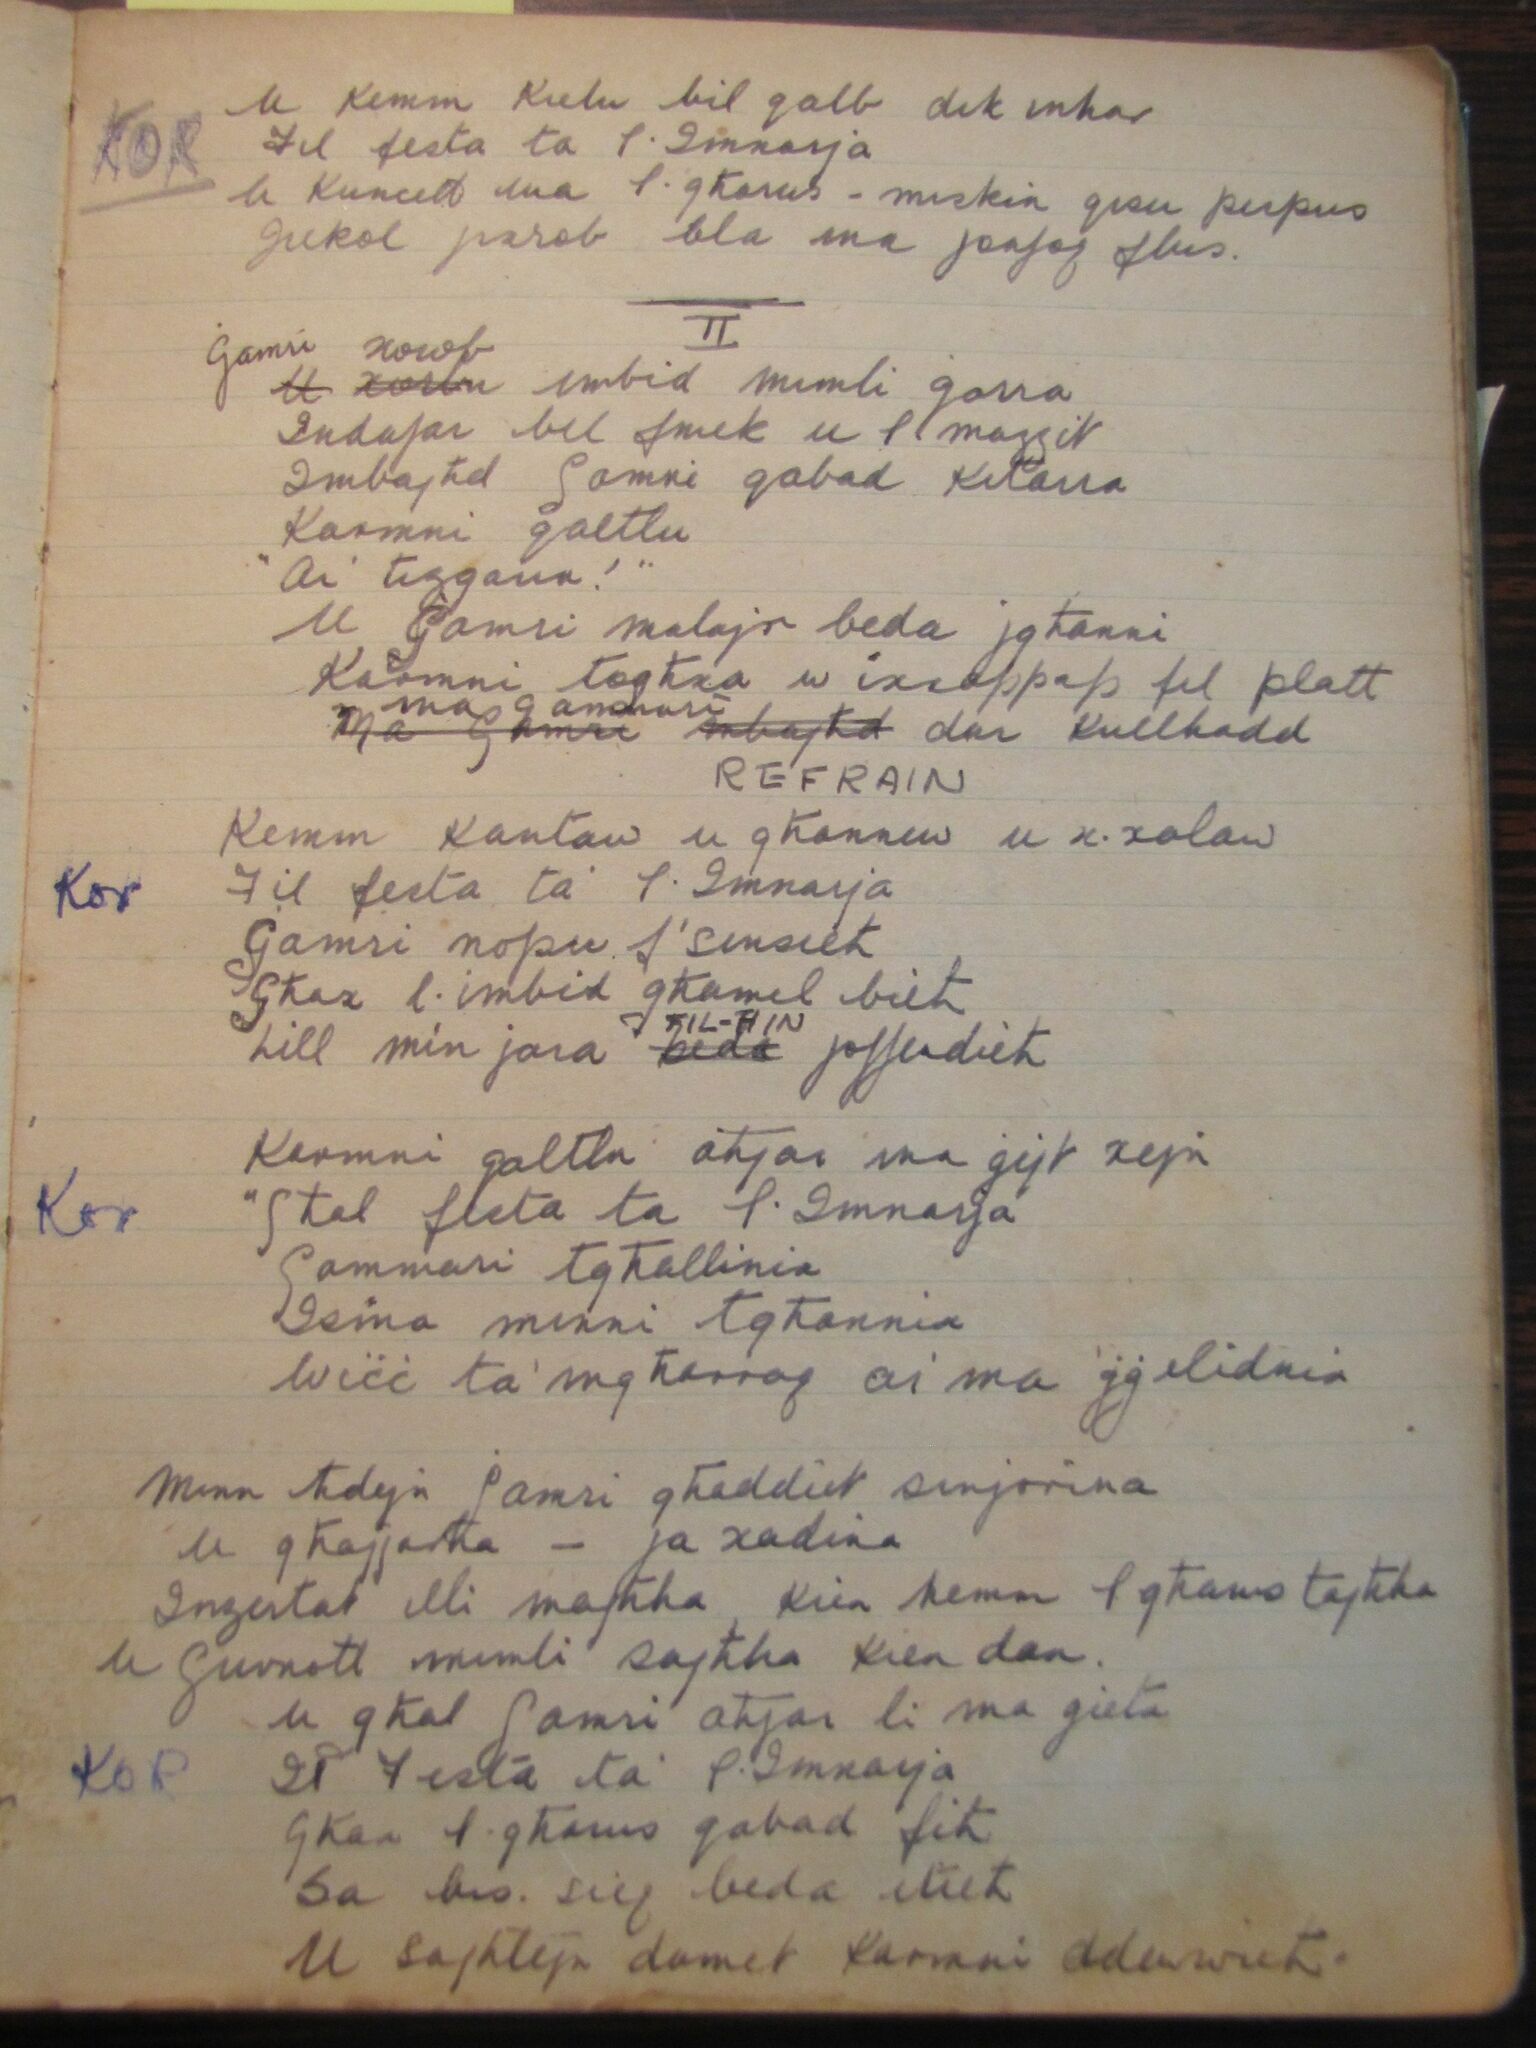 U kemm kielu bil qalb dik inhar
KOR
Fil festa ta l. Imnarja
U Kuncett ma l. għarus - miskin qisu pespus
Jiekol jixrob bla ma jonfoq flus.
II
Ġamri xorob
U xorbu imbid mimli ġarra
Indafar bil fniek u l mazzit
Imbagħd Ġamri qabad kitarra
Karmni qaltlu
"Ai tizzarra!"
U Ġamri malajr beda jgħanni
Karmni togħxa u ixxappap fil platt
ma Ġammari
Ma Ġamri mbagħd dar kullħadd
REFRAIN
Kemm kantaw u għannew u x.xalaw
Kor
Fil festa ta' l. Imnarja
Ġamri nofsu f'sensieħ
Għax l. imbid għamel bieħ
Lill min jara FIL-ĦIN beda joffendieħ
Karmni qaltlu aħjar ma ġejt xejn
Kor
"Għal festa ta l. Imnarja
Ġammari tgħallinix
Isma minni tgħannix
Wiċċ ta' mgħarraq ai ma ġġelidnix
Minn ħdejn Ġamri għaddiet sinjorina
U għajjarha - ja xadina
Inzertat illi magħha kien hemm l għarus tagħha
U Ġurnott mimli saħħa kien dan.
U għal Ġamri aħjar li ma ġieta
KOR
Il Festa ta' l. Imnarja
Għax l. għarus qabad fiħ
Sa bis. sieq beda itieħ
U sagħtejn damet Karmni ddewwieħ.